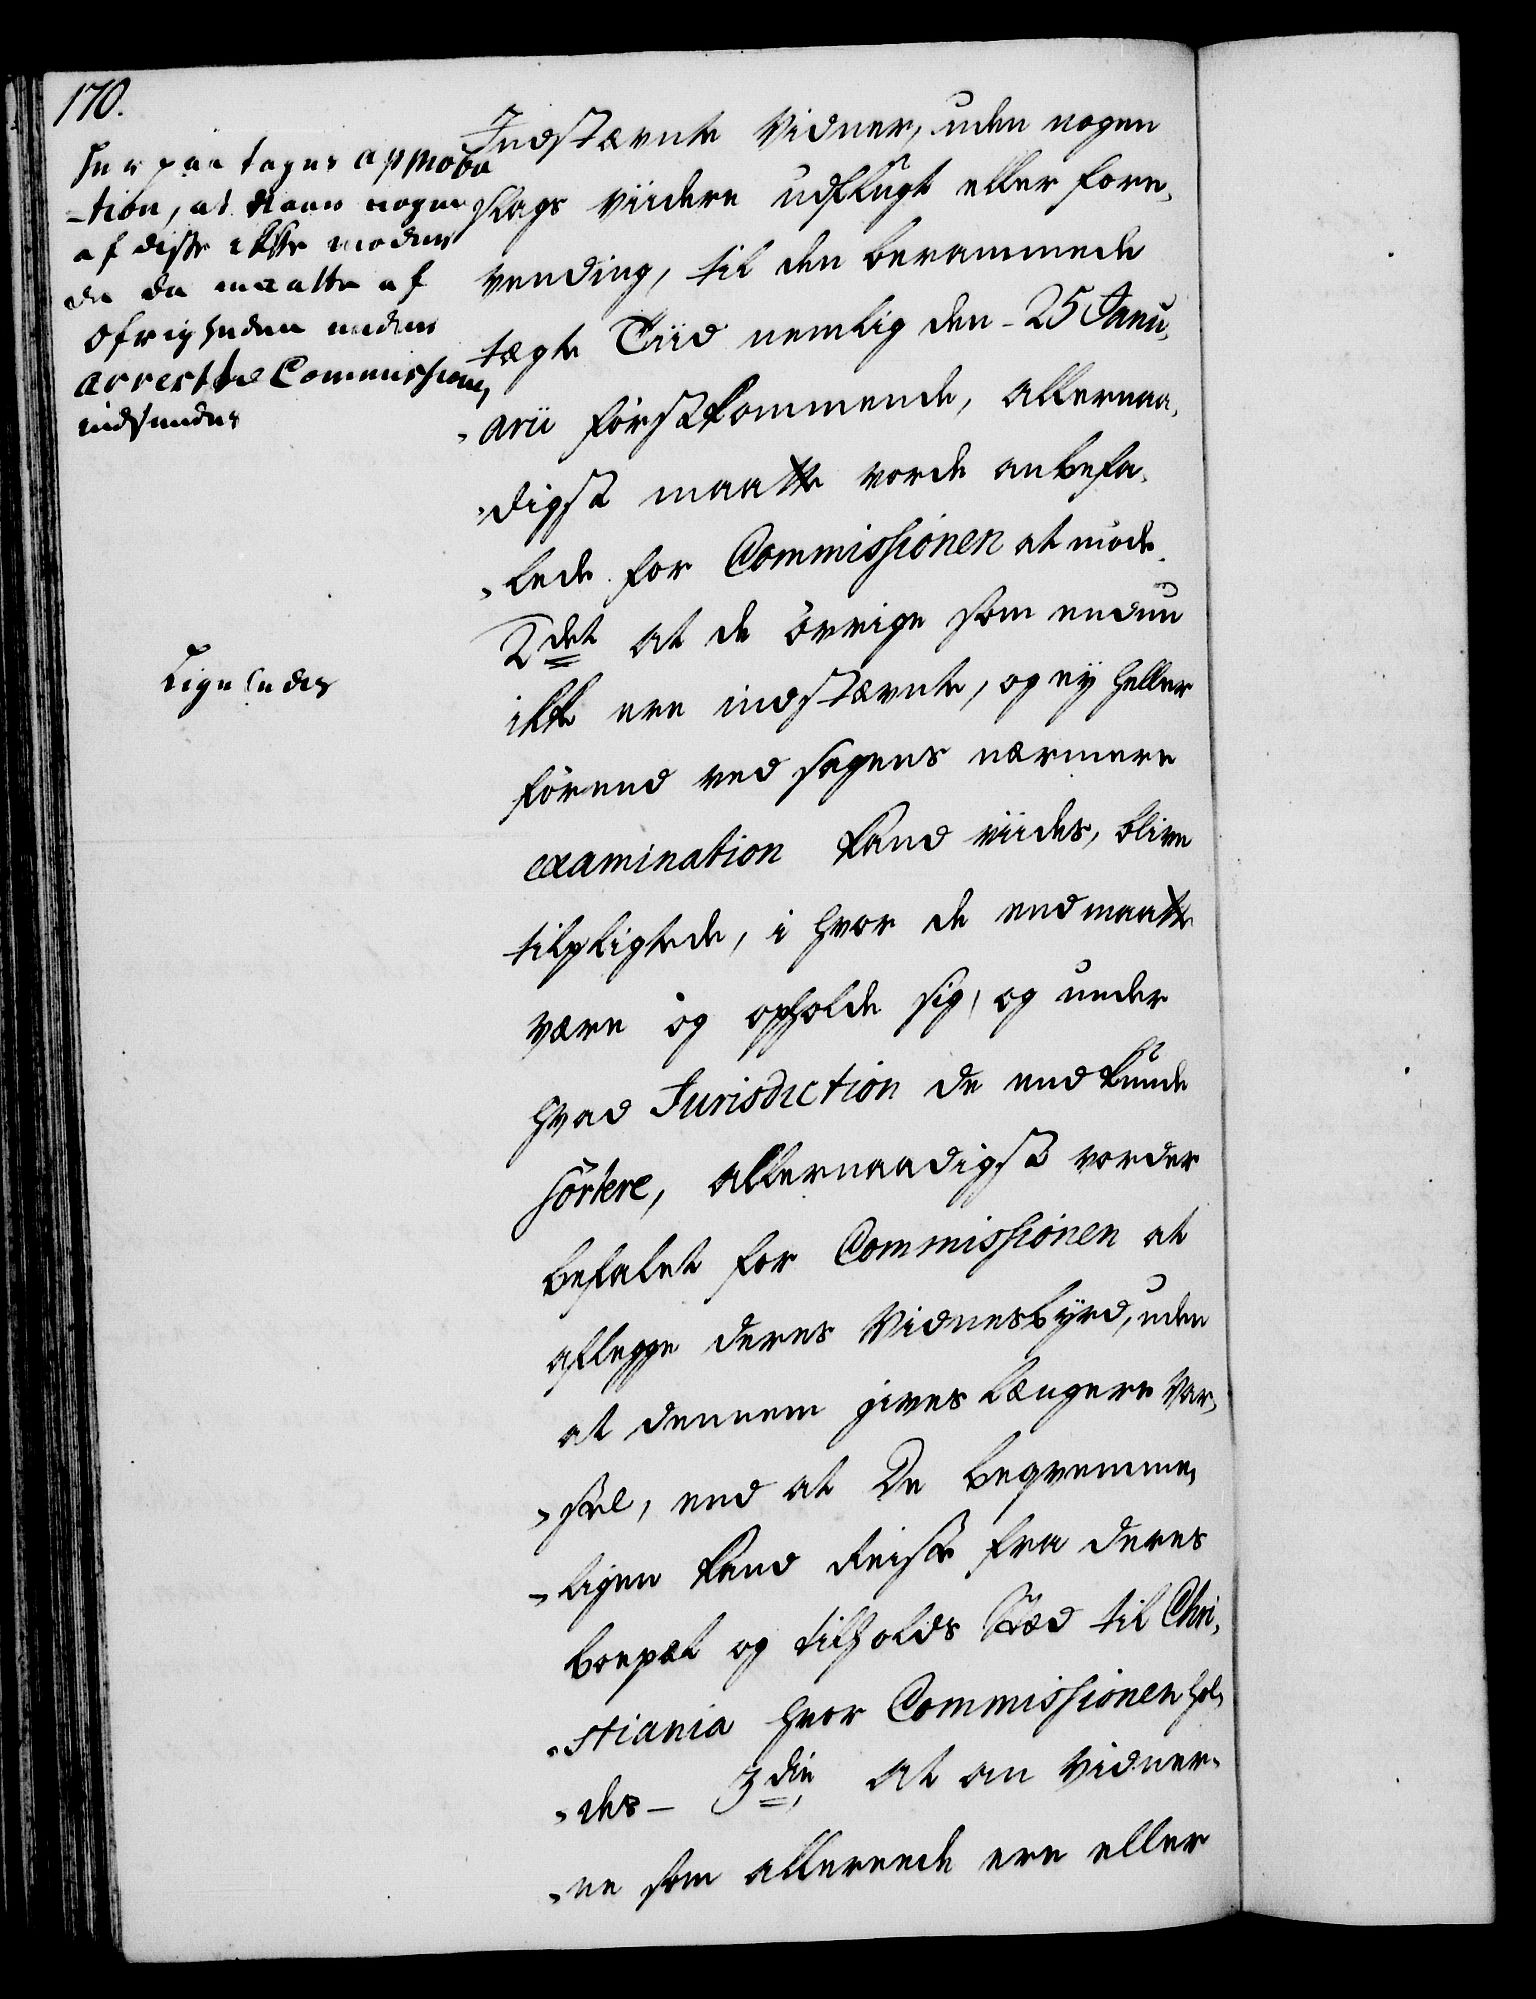 170.
Her paa tages approba
-tion, at naar nogen
af disse ikke møder
de da maatte af
Øfrigheden under
arrest til Commissionen
indsendes
Indstævnte Vidner, uden nogen
slags viidere udflugt eller fore,
vending, til den berammede
tægte Tiid nemlig den 25 Janu,
„arii førstkommende, allernaa,
„digst maatte vorde anbefa,
„lede for Commissionen at møde.
2det at de øvrige som endnu
ikke ere indstævnte, og ey heller
førend ved sagens nærmere
examination kand viides, blive
tilpligtede, i hvor de end maatte
være og opholde sig, og under
hvad Jurisdiction de end kunde
sortere, allernaadigst vorder
befalet for Commissionen at
aflegge deres Vidnesbyrd, uden
at dennem gives længere Var,
„sel, end at De beqvemme,
„ligen kand Reise fra deres
boepæl og tilholds Stæd til Chri,
„stiania hvor Commissionen hol,
„des - 3die, at en Vidner„
„ne som allerede ere eller
Ligeledes